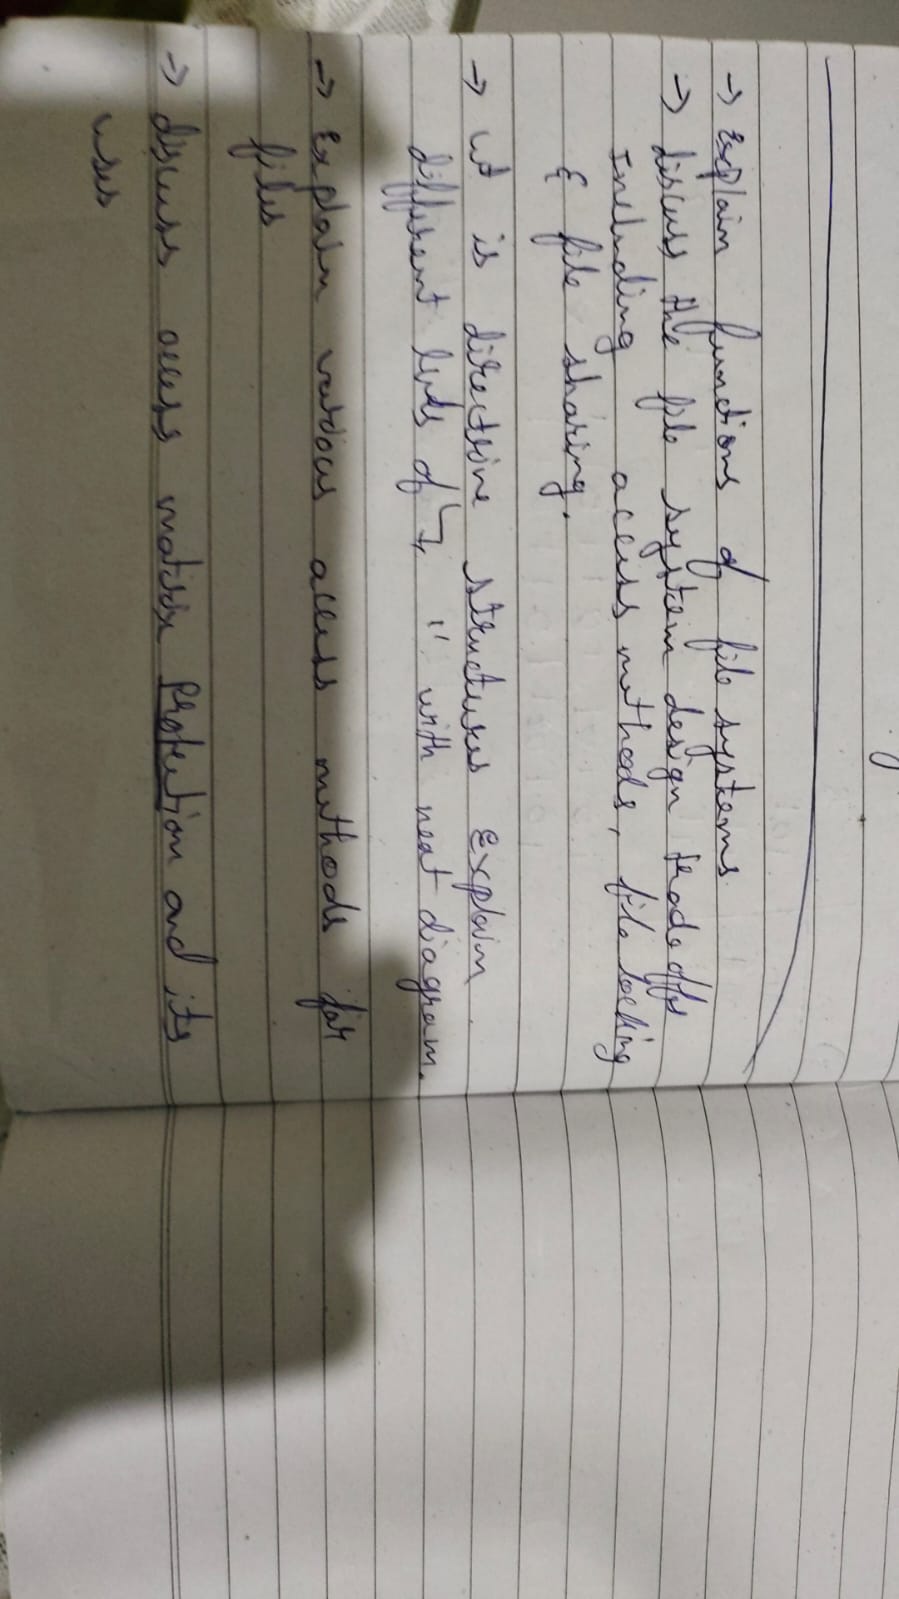 → Explain functions of file systems
→ discuss the file system design trade offs
Including access methods, file locking
& file sharing.
→ wt is directrive structures Explain
different of " with neat diagram.
→ Explain various access methods for
files
→ discuss access matrix Protection and its
uses